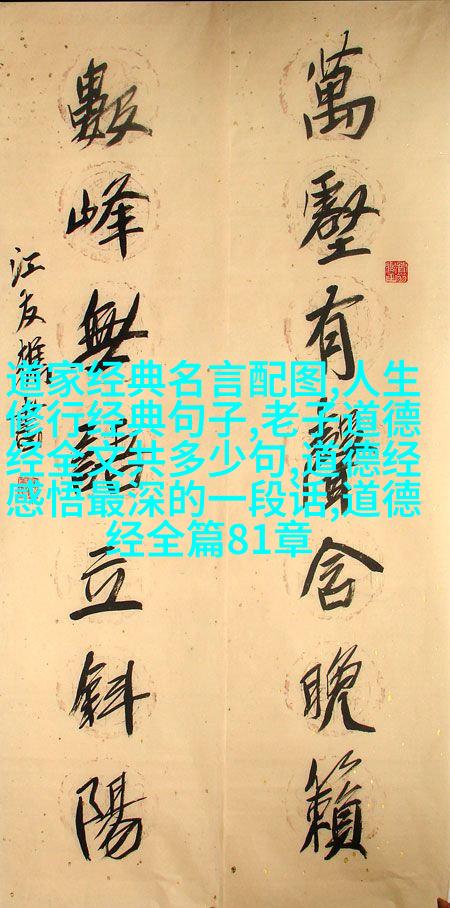 萬壑有聲含晚籟
數峰無語立斜陽
道家经典名言配图,人生
修行经典句子,老子道德
经全文共多少句,道德经
感悟最深的一段话,道德
经全篇81章